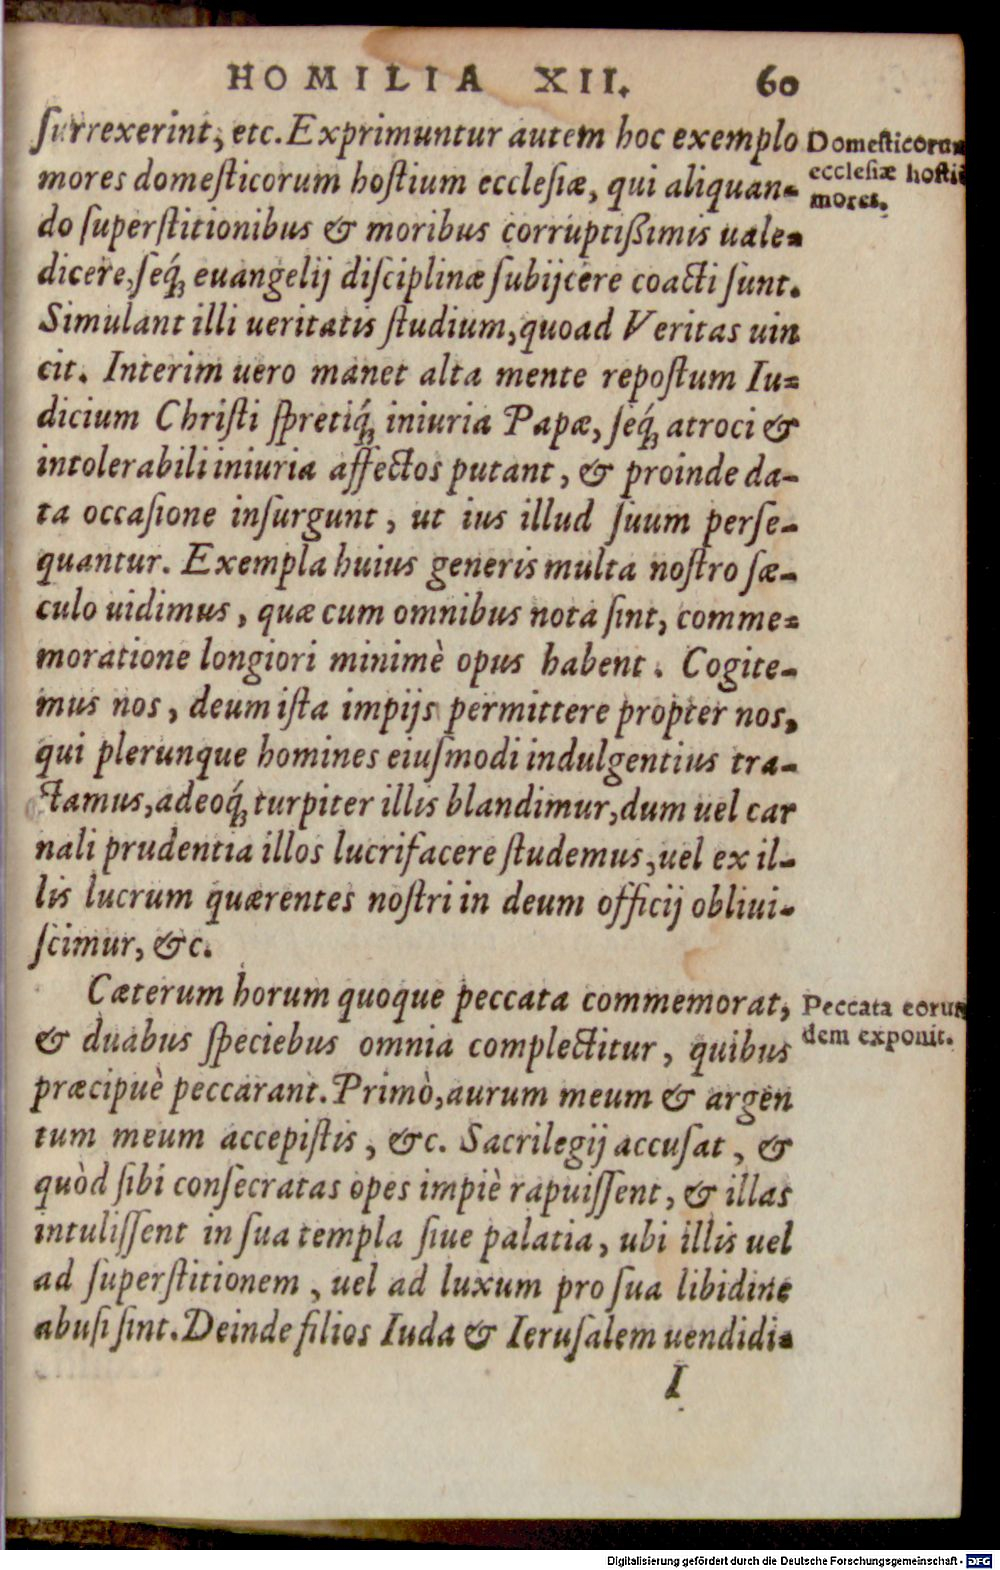 HOMILIA XII. 60
surrexerint, etc. Exprimuntur autem hoc exemplo
mores domesticorum hostium ecclesiæ, qui aliquan-
do superstitionibus & moribus corruptißimis uale-
dicere, seq́ꝫ euangelij disciplinæ subijcere coacti sunt.
Simulant illi ueritatis studium, quoad Veritas uin
cit. Interim uero manet alta mente repostum Iu-
dicium Christi spretiq́ꝫ iniuria Papæ, seq́ꝫ atroci &
intolerabili iniuria affectos putant, & proinde da-
ta occasione insurgunt, ut ius illud suum perse-
quantur. Exempla huius generis multa nostro sæ-
culo uidimus, quæ cum omnibus nota sint, comme-
moratione longiori minimè opus habent. Cogite-
mus nos, deum ista impijs permittere propter nos,
qui plerunque homines eiusmodi indulgentius tra-
ctamus, adeoq́ꝫ turpiter illis blandimur, dum uel car
nali prudentia illos lucrifacere studemus, uel ex il-
lis lucrum quærentes nostri in deum officij obliui-
scimur, &c.
Cæterum horum quoque peccata commemorat,
& duabus speciebus omnia complectitur, quibus
præcipuè peccarant. Primò, aurum meum & argen
tum meum accepistis, &c. Sacrilegij accusat, &
quòd sibi consecratas opes impiè rapuissent, & illas
intulissent in sua templa siue palatia, ubi illis uel
ad superstitionem, uel ad luxum pro sua libidine
abusi sint. Deinde filios Iuda & Ierusalem uendidi-
I
Domesticorum
ecclesiæ hostiū
mores.
Peccata eorun
dem exponit.
Digitalisierung gefördert durch die Deutsche Forschungsgemeinschaft - DFG